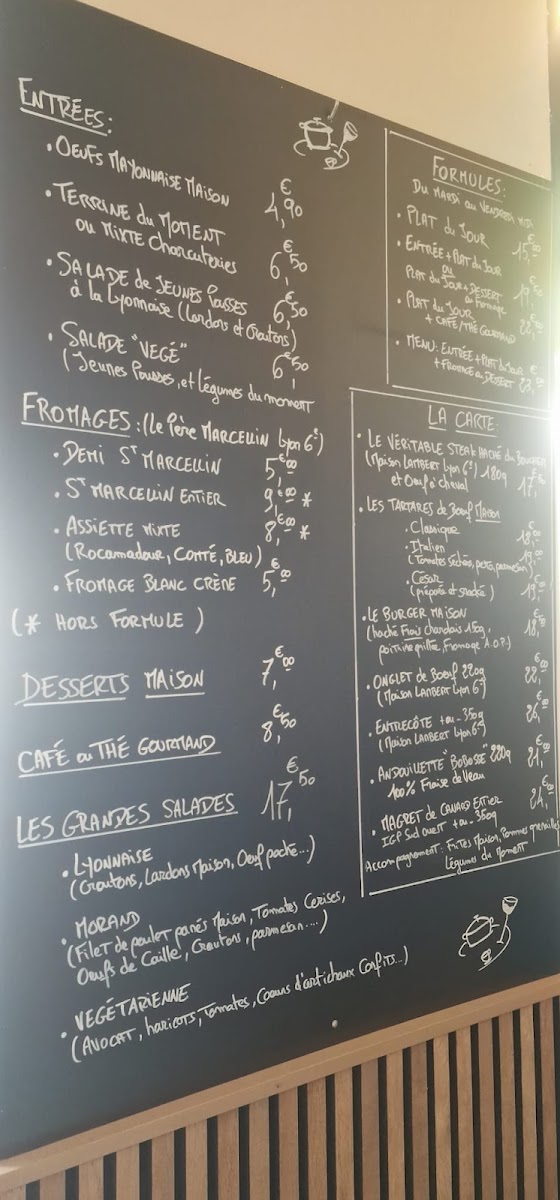 ENTRÉES:
• OEUFS MAYONNAISE MAISON 4,90€
• TERRINE du MOMENT
ou MIXTE Charcuteries 6,50€
• SALADE de JEUNES POUSSES
à la Lyonnaise (Lardons et Croutons) 6,50€
• SALADE "VEGÉ" 6,50€
(Jeunes Pousses, et Légumes du moment
FROMAGES: (Le Père MARCELLIN Lyon 6è)
• DEMI St MARCELLIN 5,00€
• St MARCELLIN ENTIER 9,00€ *
• ASSIETTE MIXTE 8,00€ *
(Rocamadour, COMTÉ, BLEU)
• FROMAGE BLANC CRÈME 5,00€
(* HORS FORMULE)
DESSERTS MAISON 7,00€
CAFÉ ou THÉ GOURMAND 8,50€
LES GRANDES SALADES 17,50€
• LYONNAISE
(Croutons, Lardons Maison, Oeuf poché...)
• MORAND
(Filet de poulet panés Maison, Tomates Cerises,
Oeufs de Caille, Croutons, parmesan....)
• VEGÉTARIENNE
(AVOCAT, haricots, Tomates, Coeurs d'artichaux Confits...)
FORMULES:
DU MARDI au VENDREDI MIDI
• PLAT du JOUR 15,€
• ENTRÉE + PLAT du JOUR
ou
PLAT du JOUR + DESSERT
ou Fromage
• PLAT du JOUR
+ CAFÉ/THÉ GOURMAND
• MENU: ENTRÉE + PLAT du JOUR
+ FROMAGE ou DESSERT
LA CARTE:
• LE VERITABLE STEAK HACHÉ du BOUCHER
(Maison LAMBERT Lyon 6è) 180g
et Oeuf à cheval 17,
• LES TARTARES de Boeuf MAISON
• Classique 18,00
• Italien 19,00
(Tomates Séchées, pesto, parmesan)
• César 19,
(préparé et snacké)
• LE BURGER MAISON 18,
(haché Frais charolais 150g,
poitrine grillée, Fromage A.O.P.)
• ONGLET de BOEUF 220g
(Maison LAMBERT Lyon 6è)
• ENTRECÔTE +ou- 350g 26,
(Maison LAMBERT Lyon 6è)
• ANDOUILLETTE "BOBOSSE" 220g
100% Fraise de Veau
• MAGRET de CANARD ENTIER
IGP Sud ouest +ou- 350g
Accompagnement: Frites Maison, Pommes grenailles
Légumes du Moment